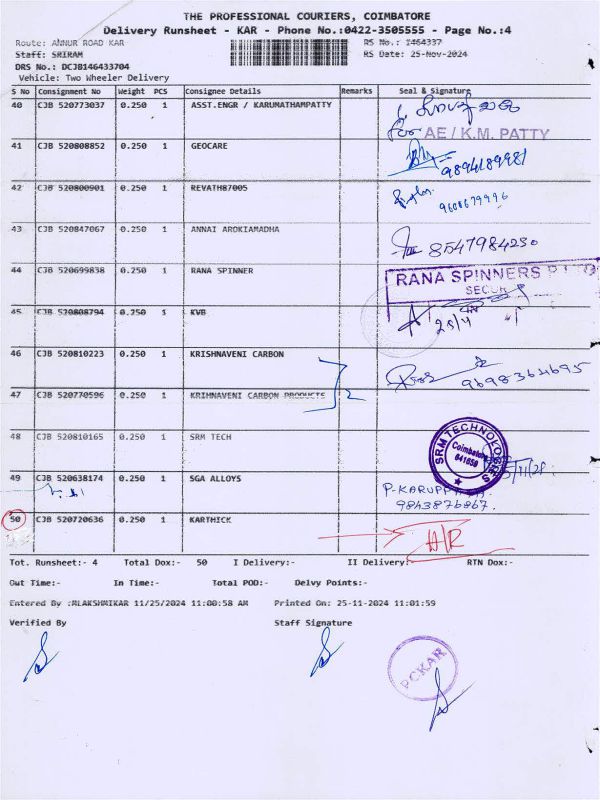 THE PROFESSIONAL COURIERS, COIMBATORE
Delivery Runsheet - KAR - Phone No.:0422-3505555 - Page No.:4
Route: ANNUR ROAD KAR RS No.: 1464337
Staff: SRIRAM RS Date: 25-Nov-2024
DRS No.: DCJB146433704
Vehicle: Two Wheeler Delivery
S No Consignment No Weight PCS Consignee Details Remarks Seal & Signature
40 CJB 520773037 0.250 1 ASST.ENGR / KARUMATHAMPATTY
AE / K.M. PATTY
41 CJB 520808852 0.250 1 GEOCARE
9894189981
42 CJB 520800901 0.250 1 REVATH87005
9608679996
43 CJB 520847067 0.250 1 ANNAI AROKIAMADHA
8547984230
44 CJB 520699838 0.250 1 RANA SPINNER RANA SPINNERS
45 CJB 520808794 0.250 1 KVB
46 CJB 520810223 0.250 1 KRISHNAVENI CARBON
9698364695
47 CJB 520770596 0.250 1 KRIHNAVENI CARBON PRODUCTS 2
48 CJB 520810165 0.250 1 SRM TECH SRM TECHNOLOGIES Coimbatore 641658
49 CJB 520638174 0.250 1 SGA ALLOYS
9843876867.
50 CJB 520720636 0.250 1 KARTHICK
Tot. Runsheet:- 4 Total Dox:- 50 I Delivery:- II Delivery:- RTN Dox:-
Out Time:- In Time:- Total POD:- Delvy Points:-
Entered By :MLAKSHMIKAR 11/25/2024 11:00:58 AM Printed On: 25-11-2024 11:01:59
Verified By Staff Signature
PCKAR